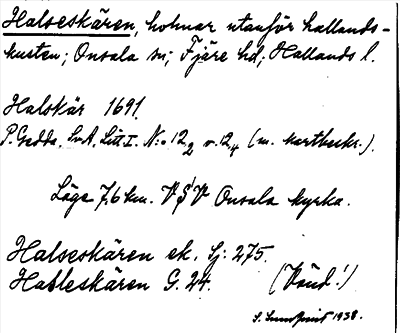 Halseskären, holmar utanför hallands-
kusten; Onsala sn; Fjäre hd; Hallands l.
Halskär 1691
P. Gedda. Sv.A. Litt I. N:o 12₂ o. 12₄ (m. kartbeskr.).
Läge 7,6 km. VSV Onsala kyrka.
Halseskären ek. Sj: 275.
Halleskären G. 24. (Vänd!)
S. Sundqvist 1938.